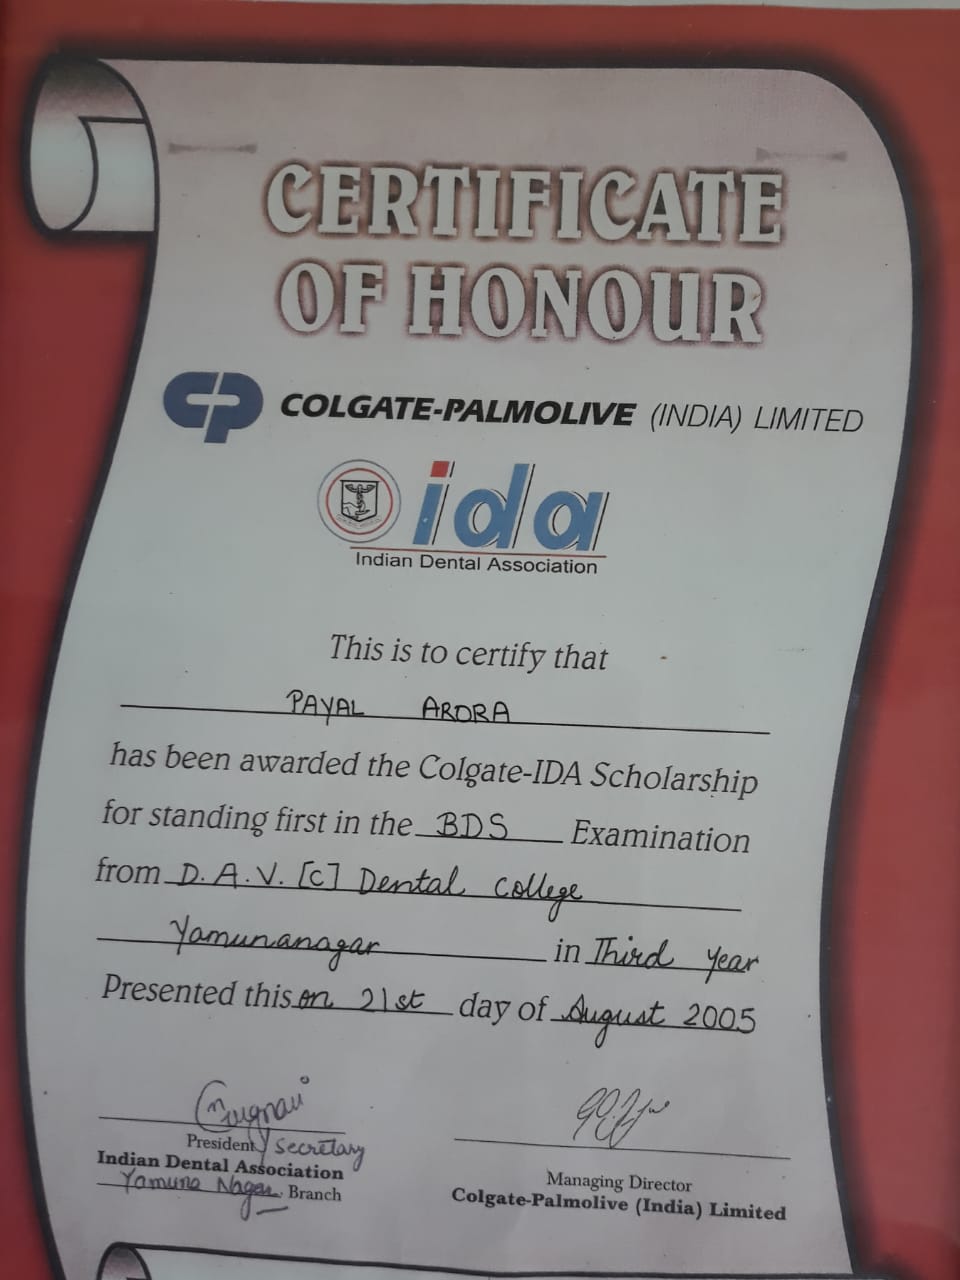 CERTIFICATE
OF HONOUR
CP COLGATE-PALMOLIVE (INDIA) LIMITED
ida
Indian Dental Association
This is to certify that
PAYAL ARORA
has been awarded the Colgate-IDA Scholarship
for standing first in the BDS Examination
from D.A.V. [C] Dental College
Yamunanagar in Third Year
Presented this on 21st day of August 2005
President / Secretary
Indian Dental Association
Yamuna Nagar Branch
Managing Director
Colgate-Palmolive (India) Limited